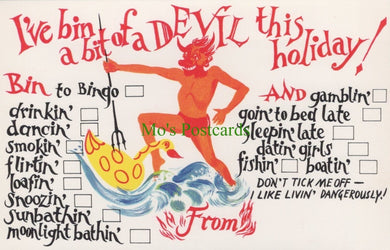 I've bin
a bit of a DEVIL this
holiday!
Bin to Bingo
drinkin'
dancin'
smokin'
flirtin'
loafin'
snoozin'
sunbathin'
moonlight bathin'
AND gamblin'
goin' to bed late
sleepin' late
datin' girls
fishin' boatin'
DON'T TICK ME OFF—
I LIKE LIVIN' DANGEROUSLY!
From
Mo's Postcards